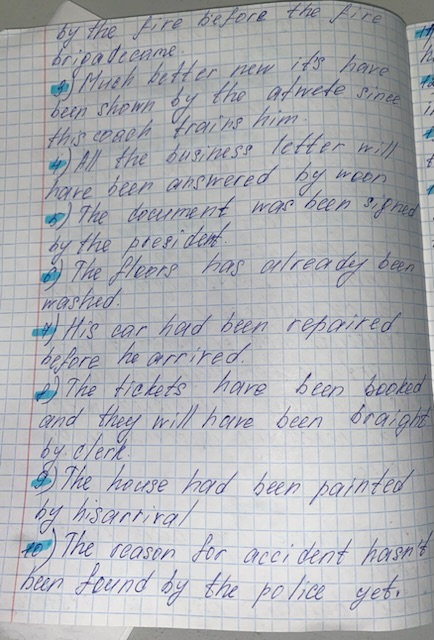 by the fire before the fire
brigadecame.
3) Much better new it's have
been shown by the atwete since
this coach trains him.
4) All the business letter will
have been answered by woon
5) The document was been signed
by the president.
6) The floors has already been
washed.
7) His car had been repaired
before he arrived.
8) The tickets have been booked
and they will have been braight
by clerk.
9) The house had been painted
by hisarrival
10) The reason for accident hasn't
been found by the police yet.